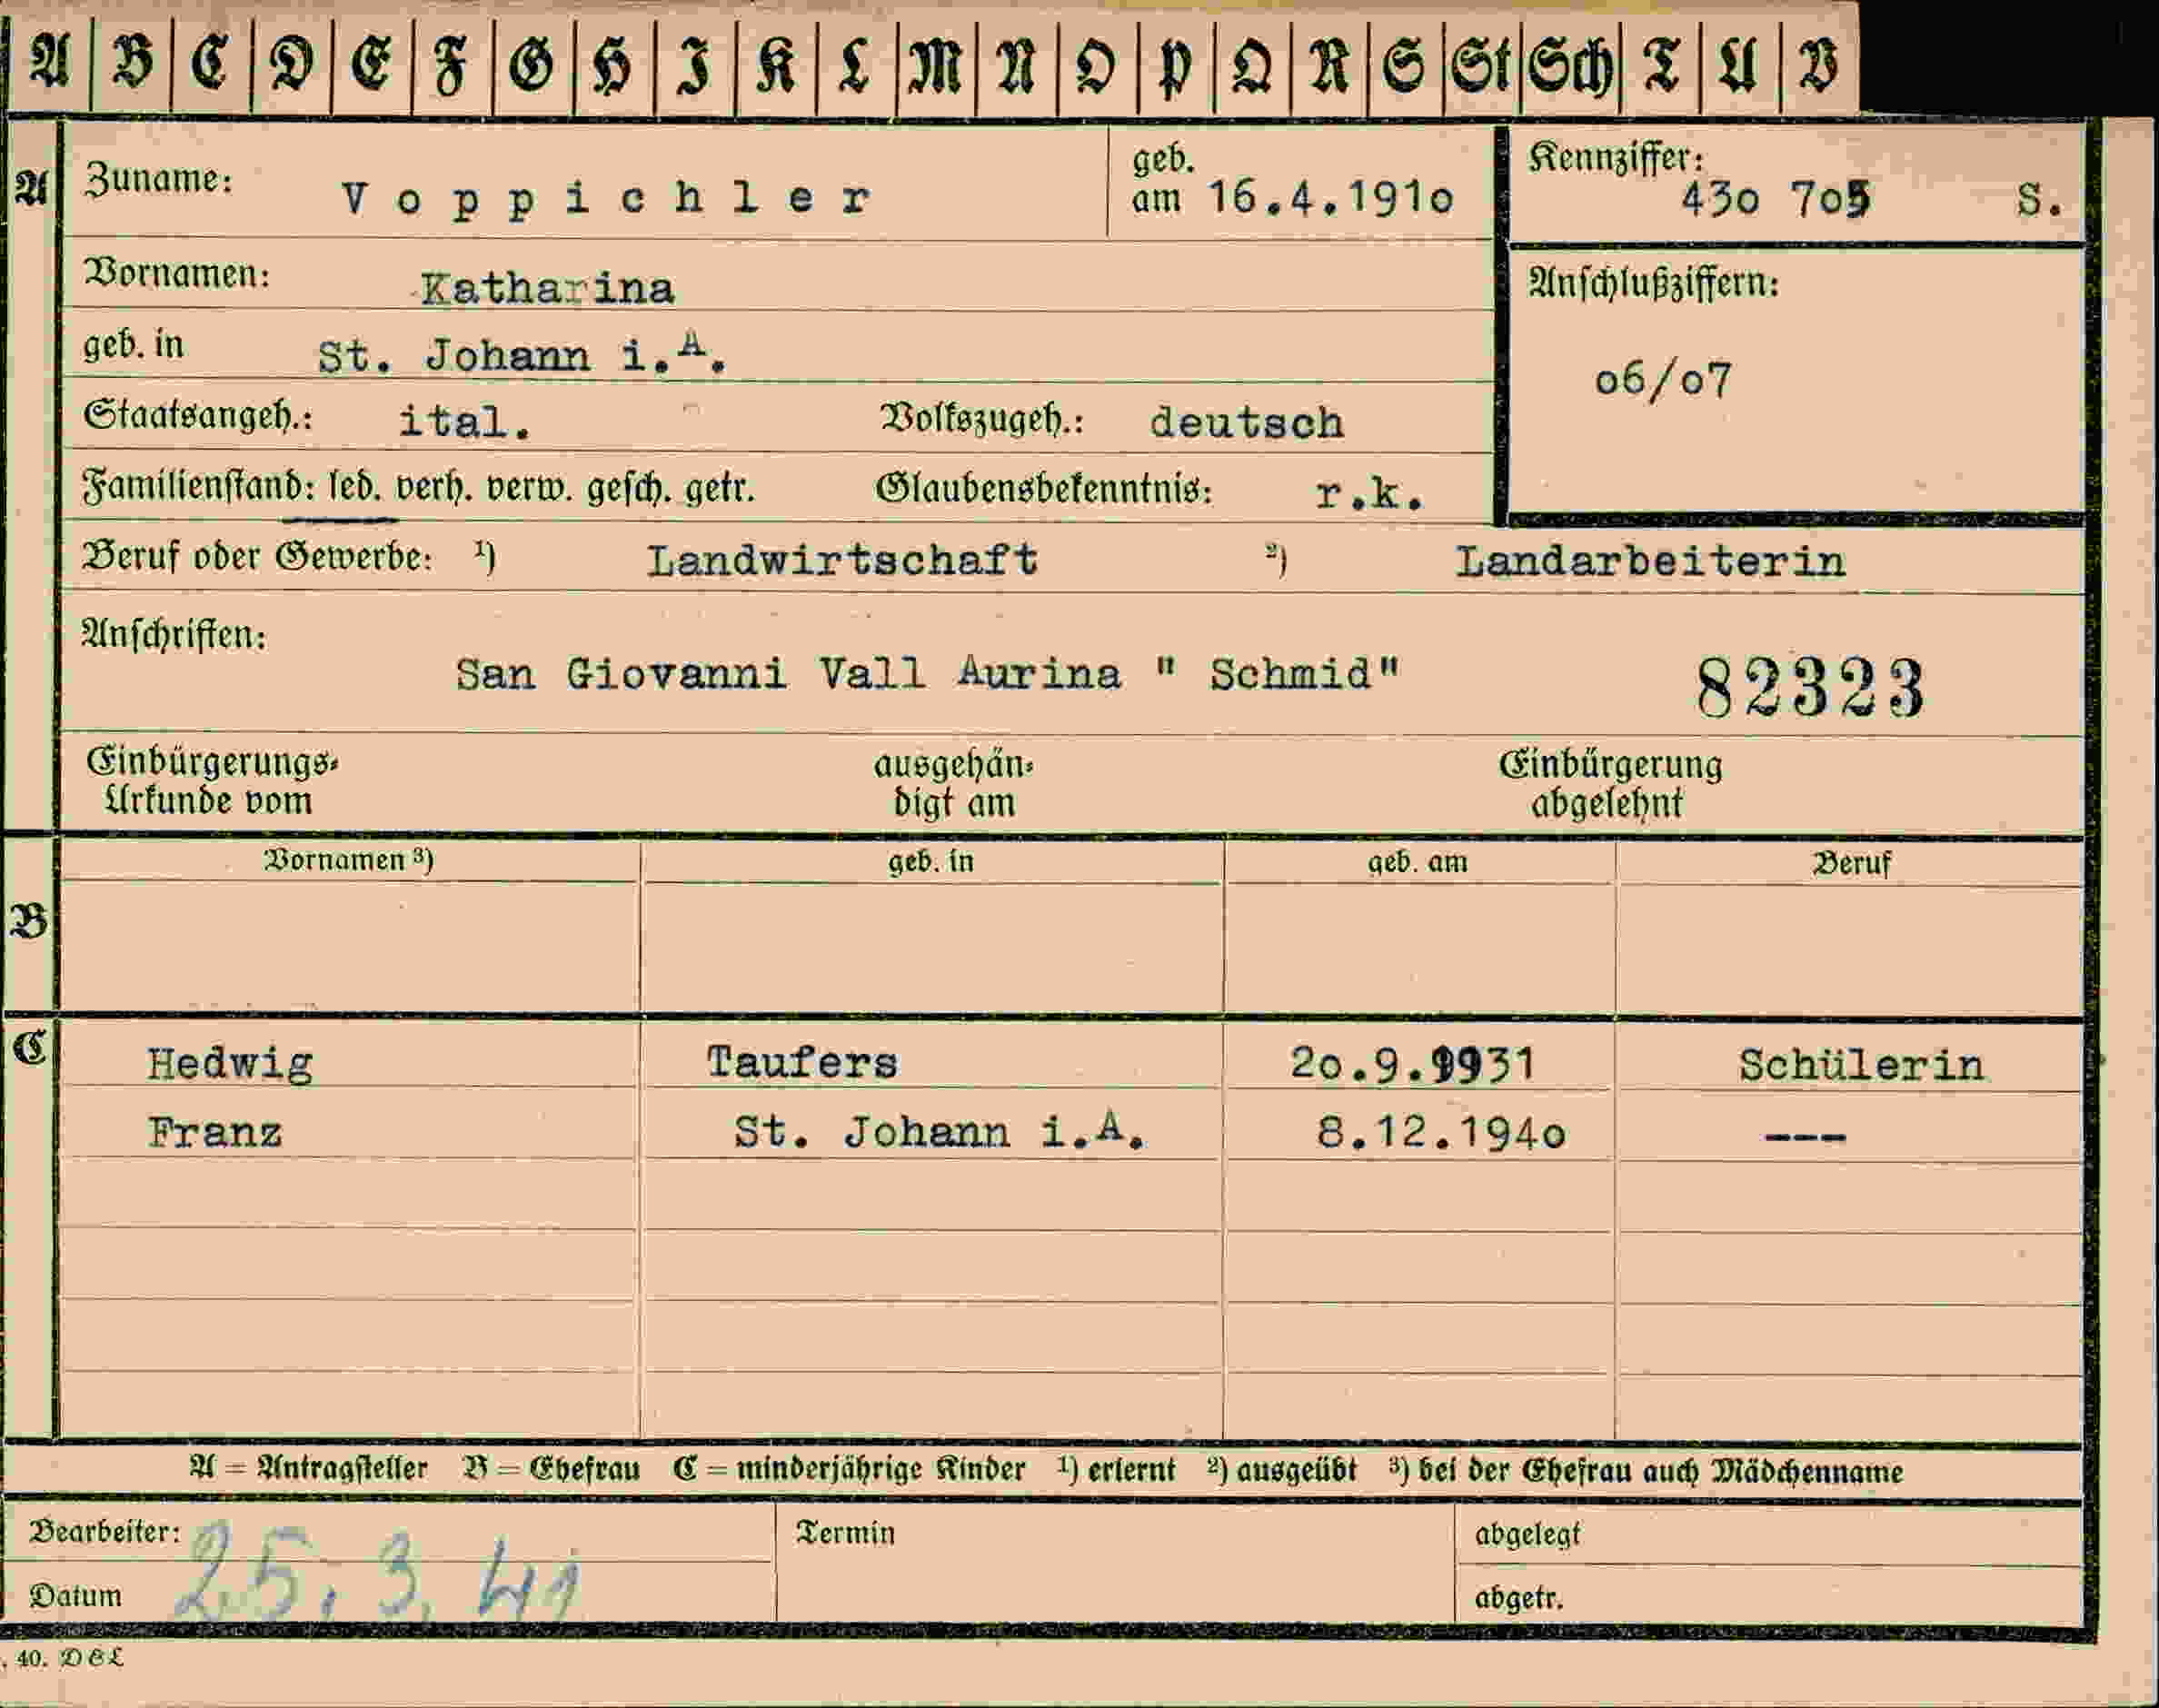 A B C D E F G H I K L M N O P Q R S St Sch T U V
A Zuname: Voppichler geb. am 16.4.1910 Kennziffer: 430 705 S.
Vornamen: Katharina
Anschlußziffern:
geb. in St. Johann i.A.
06/07
Staatsangeh.: ital. Volkszugeh.: deutsch
Familienstand: led. verh. verw. gesch. getr. Glaubensbekenntnis: r.k.
Beruf oder Gewerbe: ¹) Landwirtschaft ²) Landarbeiterin
Anschriften:
San Giovanni Vall Aurina " Schmid" 82323
Einbürgerungs- ausgehän- Einbürgerung
Urkunde vom digt am abgelehnt
Vornamen ³) geb. in geb. am Beruf
B
C Hedwig Taufers 20.9.1931 Schülerin
Franz St. Johann i.A. 8.12.1940 ---
A = Antragsteller B = Ehefrau C = minderjährige Kinder ¹) erlernt ²) ausgeübt ³) bei der Ehefrau auch Mädchenname
Bearbeiter: Termin abgelegt
25.3.41
Datum abgetr.
. 40. DEL